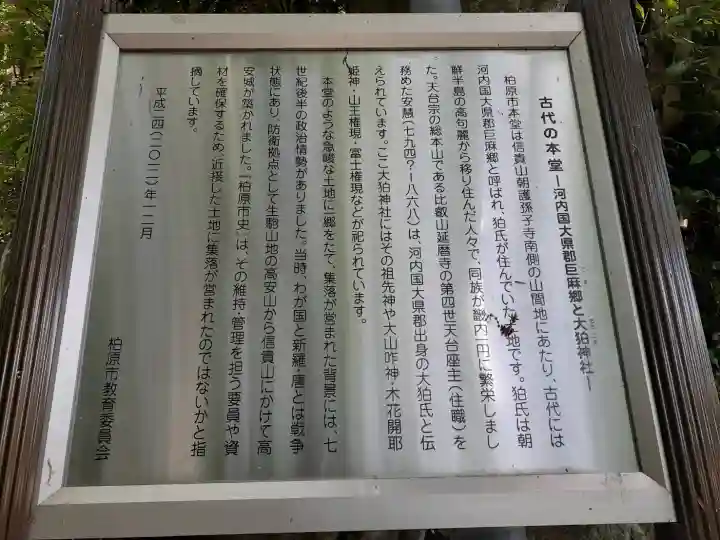 古代の本堂 ー河内国大県郡巨麻郷と大狛神社ー
柏原市本堂は信貴山朝護孫子寺南側の山間地にあたり、古代には
河内国大県郡巨麻郷と呼ばれ、狛氏が住んでいた土地です。狛氏は朝
鮮半島の高句麗から移り住んだ人々で、同族が畿内一円に繁栄しまし
た。天台宗の総本山である比叡山延暦寺の第四世天台座主(住職)を
務めた安慧(七九四?ー八六八)は、河内国大県郡出身の大狛氏と伝
えられています。ここ大狛神社にはその祖先神や大山咋神・木花開耶
姫神・山王権現・富士権現などが祀られています。
本堂のような急峻な土地に一郷をたて、集落が営まれた背景には、七
世紀後半の政治情勢がありました。当時、わが国と新羅・唐とは戦争
状態にあり、防衛拠点として生駒山地の高安山から信貴山にかけて高
安城が築かれました。『柏原市史』は、その維持・管理を担う要員や資
材を確保するため、近接した土地に集落が営まれたのではないかと指
摘しています。
平成二四(二〇一二)年一二月
柏原市教育委員会